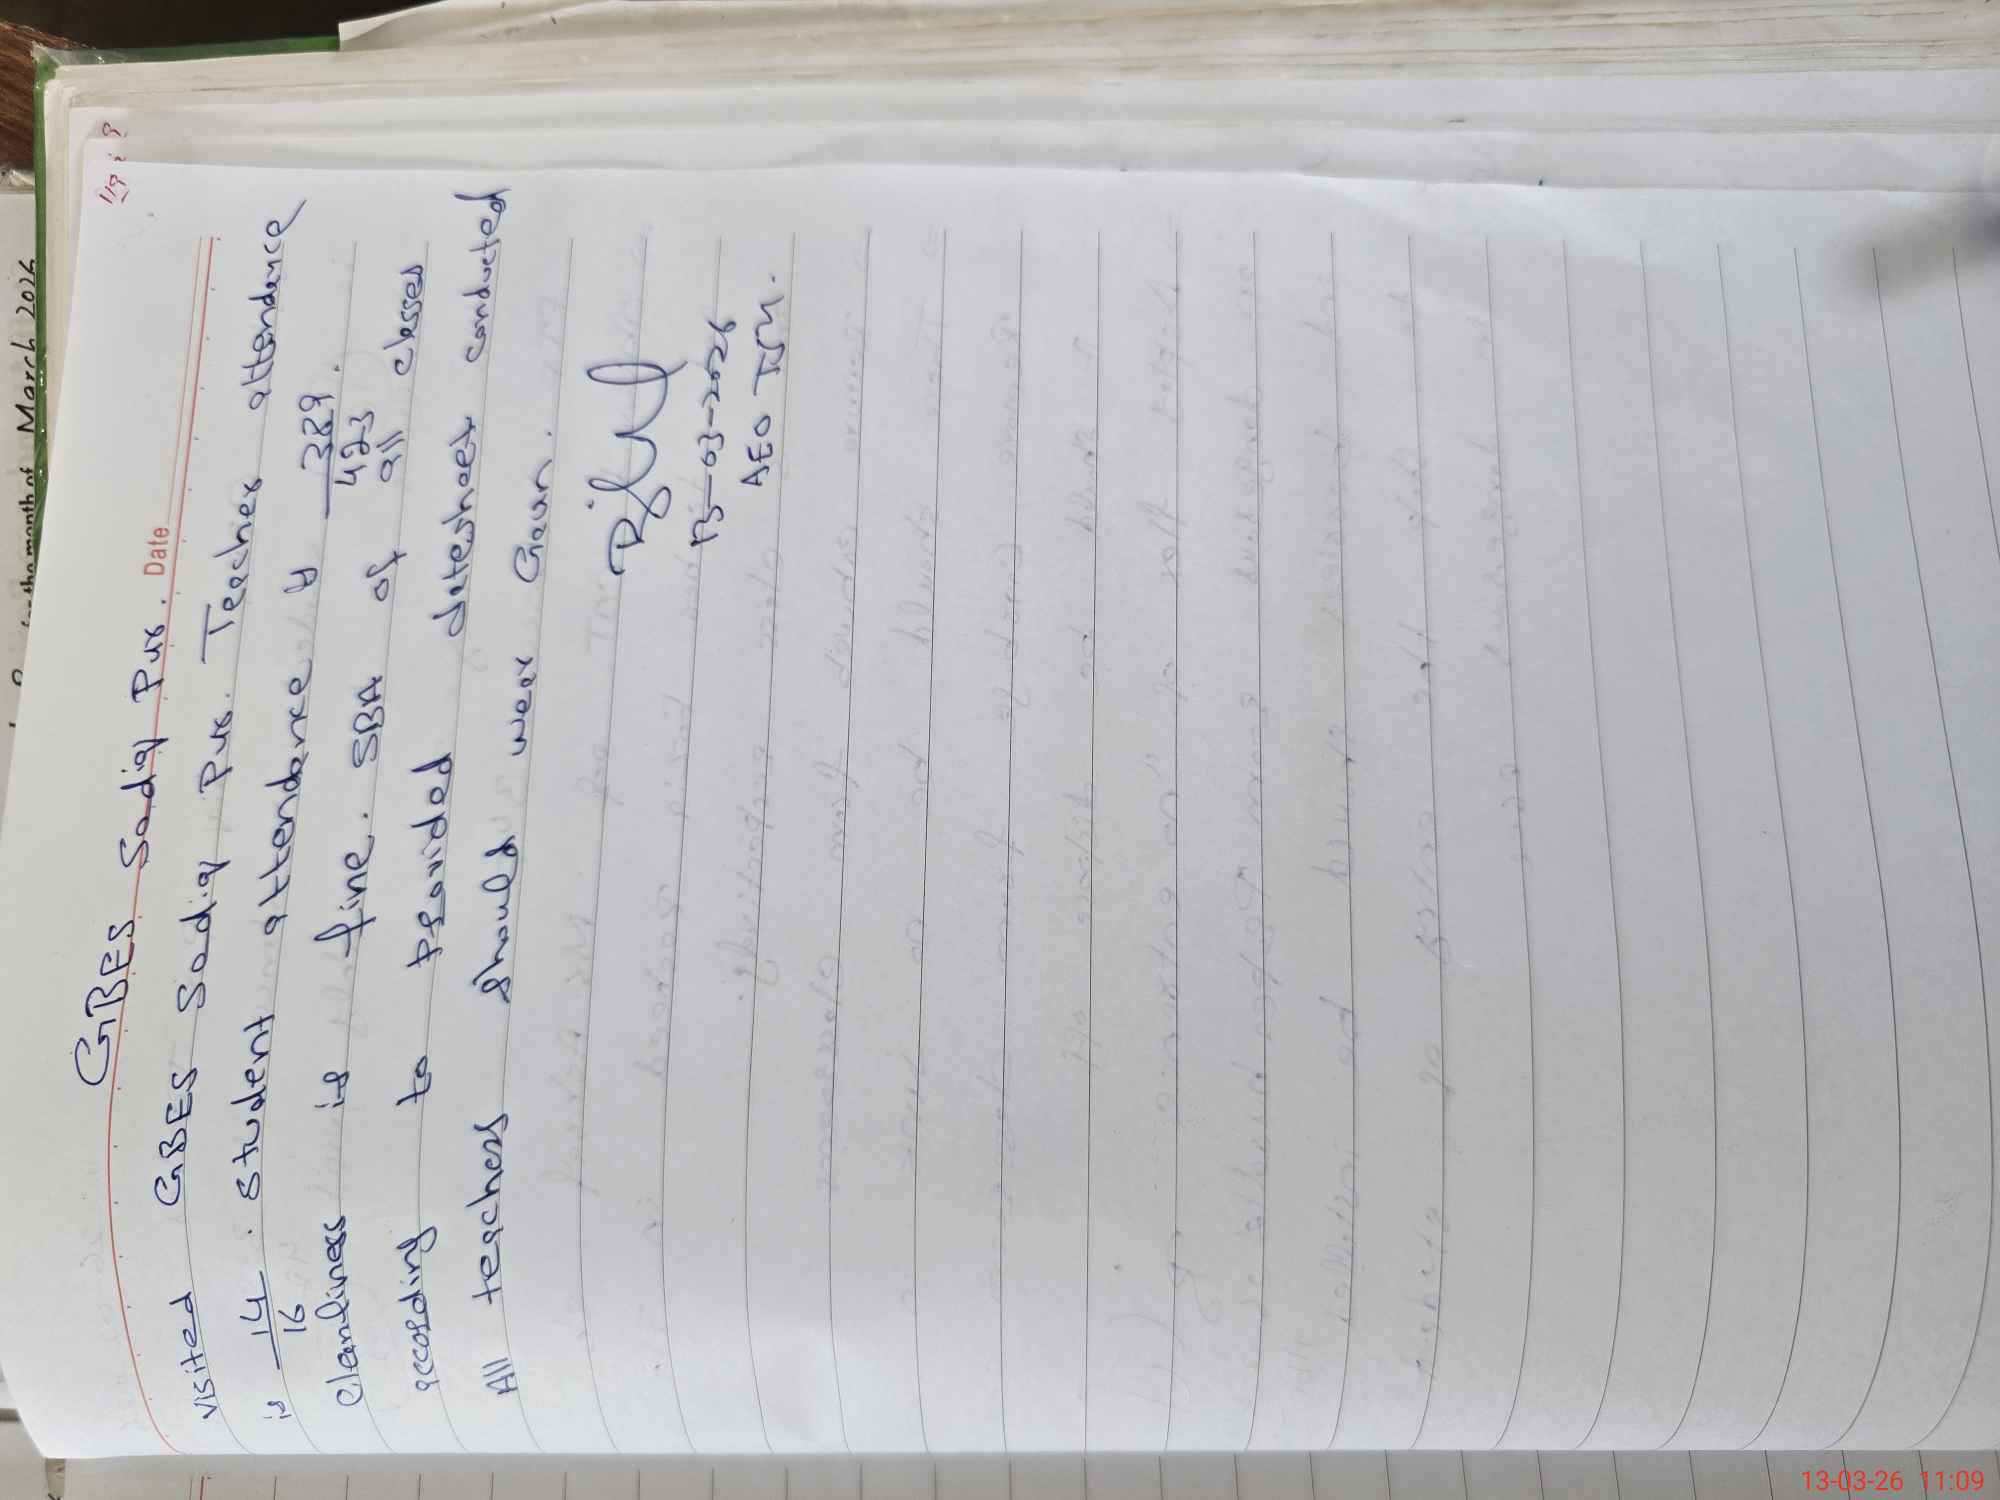 for the month of March 2026
GBES Sadiq Pur.
Date
visited GBES Sadiq Pur. Teacher attendance
is 14/16 . student attendance is 389/423 .
cleanliness is fine. SBA of all classes
according to provided datesheet conducted
All teachers should wear Gown.
13-03-2026
AEO
13-03-26 11:09